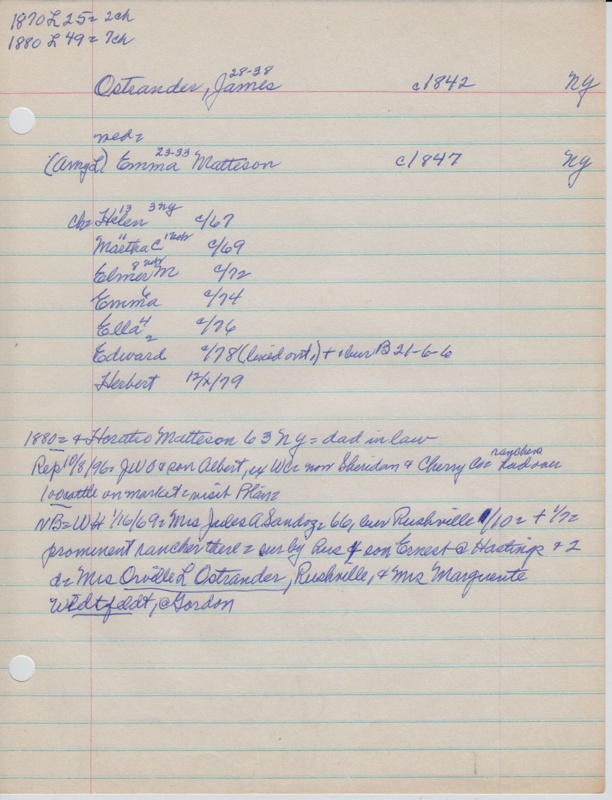 1870 L 25 = 2ch
1880 L 49 = 7ch
28-38
Ostrander, James c1842 NY
med =
23-33
(Amy L) Emma Matteson c1847 NY
13 3 NY
ch = Helen c/67
11
Martha C c/69
8
Elmer M c/72
6
Emma c/74
4
Ella c/76
2
Edward c/78 (lived ont.) + bur B 21-6-6
Herbert 12/x/79
1880 = & Horatio Matteson 63 NY = dad in law
ranchers
Rep 10/8/96 = JWO & son Albert, ex Wc now Sheridan & Cherry Co = had over
100 cattle on market & visit Plainz
NB = WH 1/16/69 = Mrs Jules A Sandoz, 66, bur Rushville 1/10 = + 1/7 =
prominent rancher there = sur by hus & son Ernest @ Hastings & 2
d = Mrs Orville L Ostrander, Rushville, & Mrs Marguerite
@ Gordon